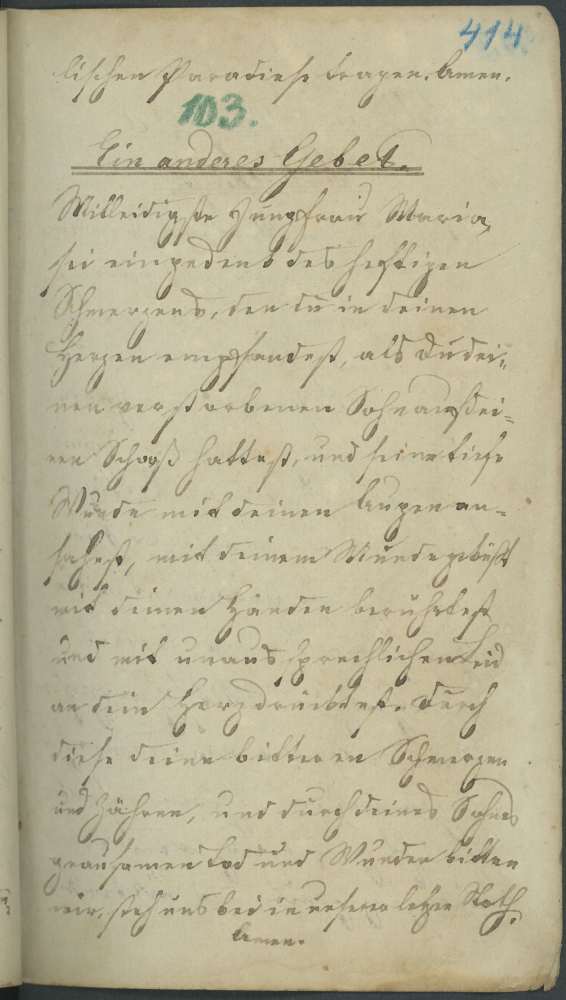 414
lischen Paradiese tragen. Amen.
103.
Ein anderes Gebet.
Mitleidigste Jungfrau Maria,
sei eingedenk des heftigen
Schmerzens, den du in deinen
Herzen empfandest, als du dei-
nen verstorbenen Sohn auf dei-
nen Schooß hattest, und seine tiefe
Wunde mit deinen Augen an-
sahest, mit deinem Munde geküßt
mit deinen Händen berührtest
und mit unaussprechlichen Leid
an dein Herz drücktest. Durch
diese deine bitteren Schmerzen
und Zähren, und durch deines Sohnes
grausamen Tod und Wunden bitten
wir, steh uns bei in unserer letzen Noth.
Amen.